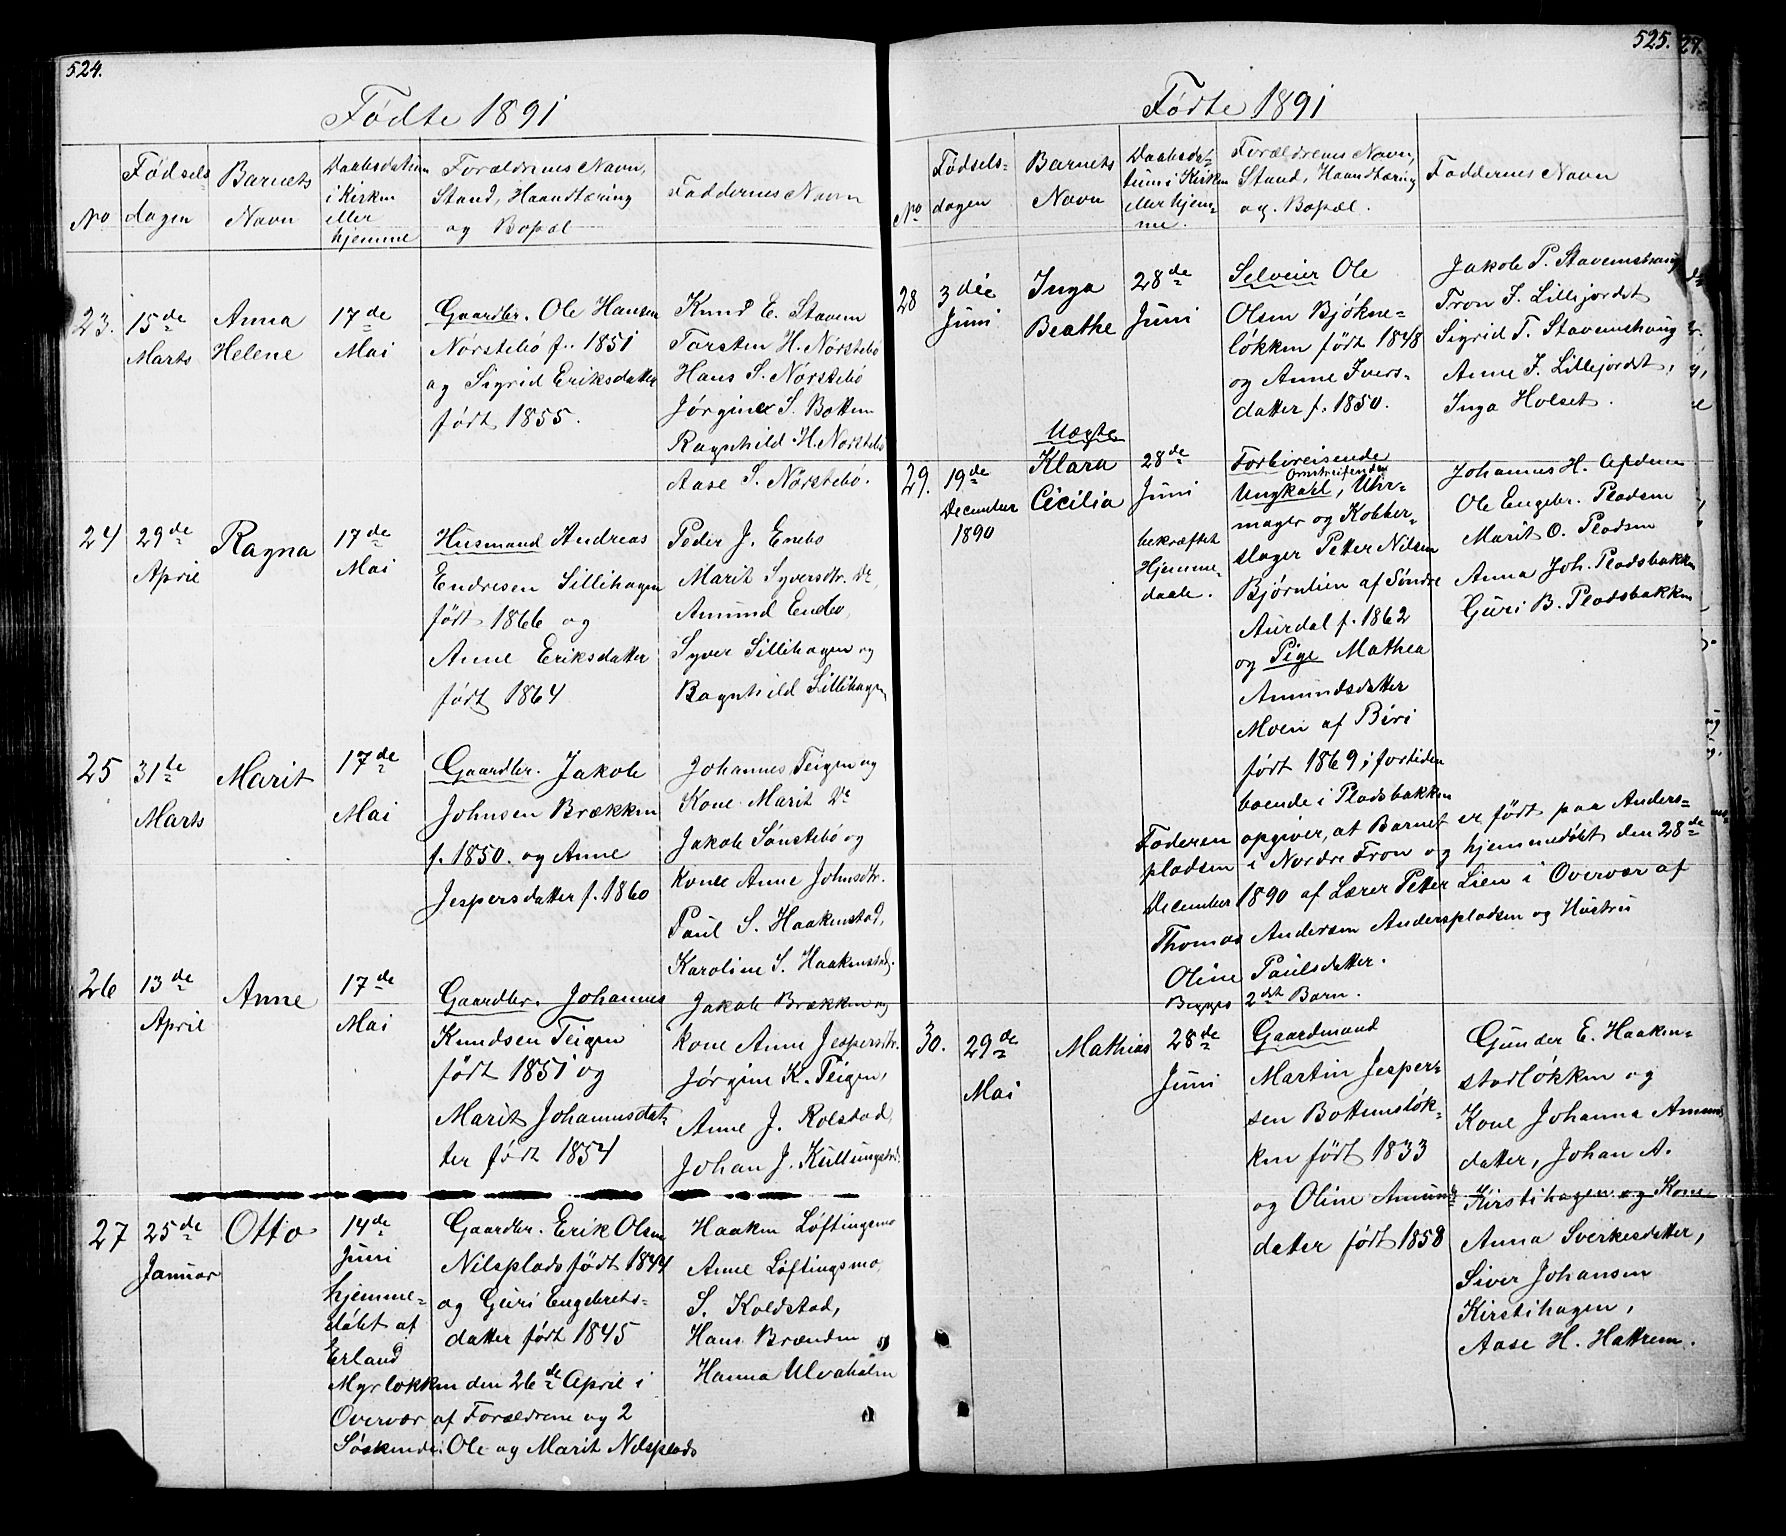 524.
Fødte 1891
No
Fødsels-
dagen
Barnets
Navn
Daabsdatum
i Kirken
eller
hjemme
Forældrenes Navn,
Stand, Haandtæring
og Bopæl
Faddernes Navn
23.
15de
Marts
Anna
Helene
17de
Mai
Gaardbr. Ole Hansen
Nørstebö f. 1851
og Sigrid Eriksdatter
født 1855.
Knud E. Stavem
Torsten H. Nörstebö
Hans S. Nörstebö
Jørgine S. Bottem
Ragnhild H. Nörstebö
Aase S. Nörstebö.
24
29de
April
Ragna
17de
Mai
Husmand Andreas
Endresen Lillihagen
født 1866 og
Anne Eriksdatter
født 1864
Peder J. Enebo
Marit Syversdtr. ds
Amund Enebo,
Syver Lillihagen og
Ragnhild Lillihagen
25
31te
Marts
Marit
17de
Mai
Gaardbr. Jakob
Johnsen Brækken
f. 1850. og Anne
Jespersdatter f. 1860
Johannes Teigen og
Kone Marit ds
Jakob Sönstebö og
Kone Anne Johnsdtr.
Paul S. Haakenstad,
Karoline S. Haakenstad.
26
13de
April
Anne
17de
Mai
Gaardbr. Johannes
Knudsen Teigen
født 1851 og
Marit Johannesdat-
ter født 1854
Jakob Brækken og
Kone Anne Jespersdtr.
Jørgine K. Teigen,
Anne J. Rolstad,
Johan J. Kullungstad.
27
25de
Januar
Otto
14de
Juni
hjemme-
døbt af
Erland
Myrløkken den 26de April i
Overvær af Forældrene og 2
Søskende: Ole og Marit Nilsplads
Gaardbr. Erik Olsen
Nilsplads født 1844
og Guri Engebrets-
datter født 1845
Haaken Løftingsmo
Anne Løftingsmo,
S. Koldstad,
Hans Brænden
Hanna Ulvaholen
525.
27.
Fødte 1891
No
Fødsels-
dagen
Barnets
Navn
Daabsda-
tum i Kirken
eller hjem-
me.
Forældrenes Navn,
Stand, Haandtæring
og Bopæl.
Faddernes Navn
28
3die
Juni
Inga
Beathe
28de
Juni
Selveier Ole
Olsen Bjøkne-
løkken født 1848
og Anne Ivers-
datter f. 1850.
Jakob P. Stavemshaug
Tron I. Lillejordet
Sigrid T. Stavemshaug
Anne I. Lillejordet,
Inga Holset.
29.
19de
December
1890
Uægte
Klara
Cecilia
28de
Juni
bekræftet
Hjemme-
daab.
Forbireisende
Omstreifende
Ungkarl, Uhr-
mager og Kobber-
slager Petter Nilsen
Bjørnlien af Söndre
Aurdal f. 1862
og Pige Mathea
Amundsdatter
Moen af Biri
født 1869, i fortiden
boende i Pladsbakken
Johannes H. Opdem
Ole Engebr. Pladsen
Marit O. Pladsen
Anna Joh. Pladsbakken
Guri B. Pladsbakken
Faderen opgiver, at Barnet er født paa Anders-
pladsen i Nordre Fron og hjemmedøbt den 28de
December 1890 af Lærer Petter Lien i Overvær af
Thomas Andersen Anderspladsen og Hustru
Oline Paulsdatter.
Begges 2det Barn.
30.
29de
Mai
Mathias
28de
Juni
Gaardmand
Martin Jesper-
sen Bottemsløk-
ken født 1833
og Oline Amunds-
datter født 1858
Gunder E. Haaken-
stadløkken og
Kone Johanna Amunds
datter, Johan A.
Kirstihagen og Kone
Anna Sverkesdatter,
Siver Johansen
Kirstihagen,
Aase H. Hattrem.